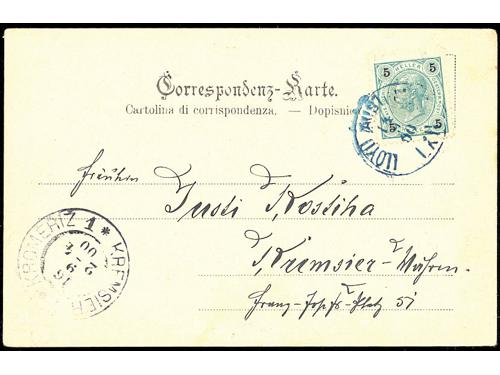 Correspondenz-Karte.
Cartolina di corrispondenza. — Dopisnice
5 HELLER 5
5 5
LLOYD AUST
Fräulein
Justi Kostiha
Kremsier-Mähren
Franz-Josefs-Platz 51
KROMĚŘIZ 1 * KREMSIER *